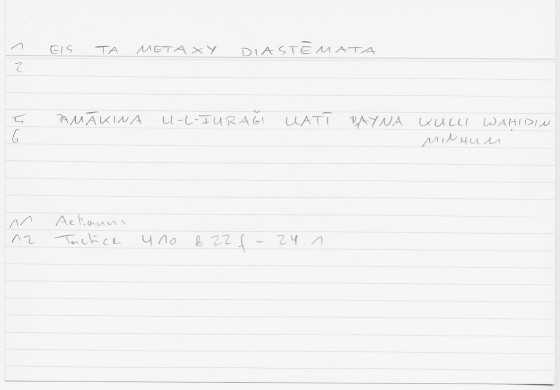 1 EIS TA METAXY DIASTĒMATA
2
5 AMĀKINA U-L-FURAǦI LLATĪ BAYNA KULLI WAḤIDIN
6 MINHUM
11 Aelianus
12 Tactica 410 B 22 f - 24.1